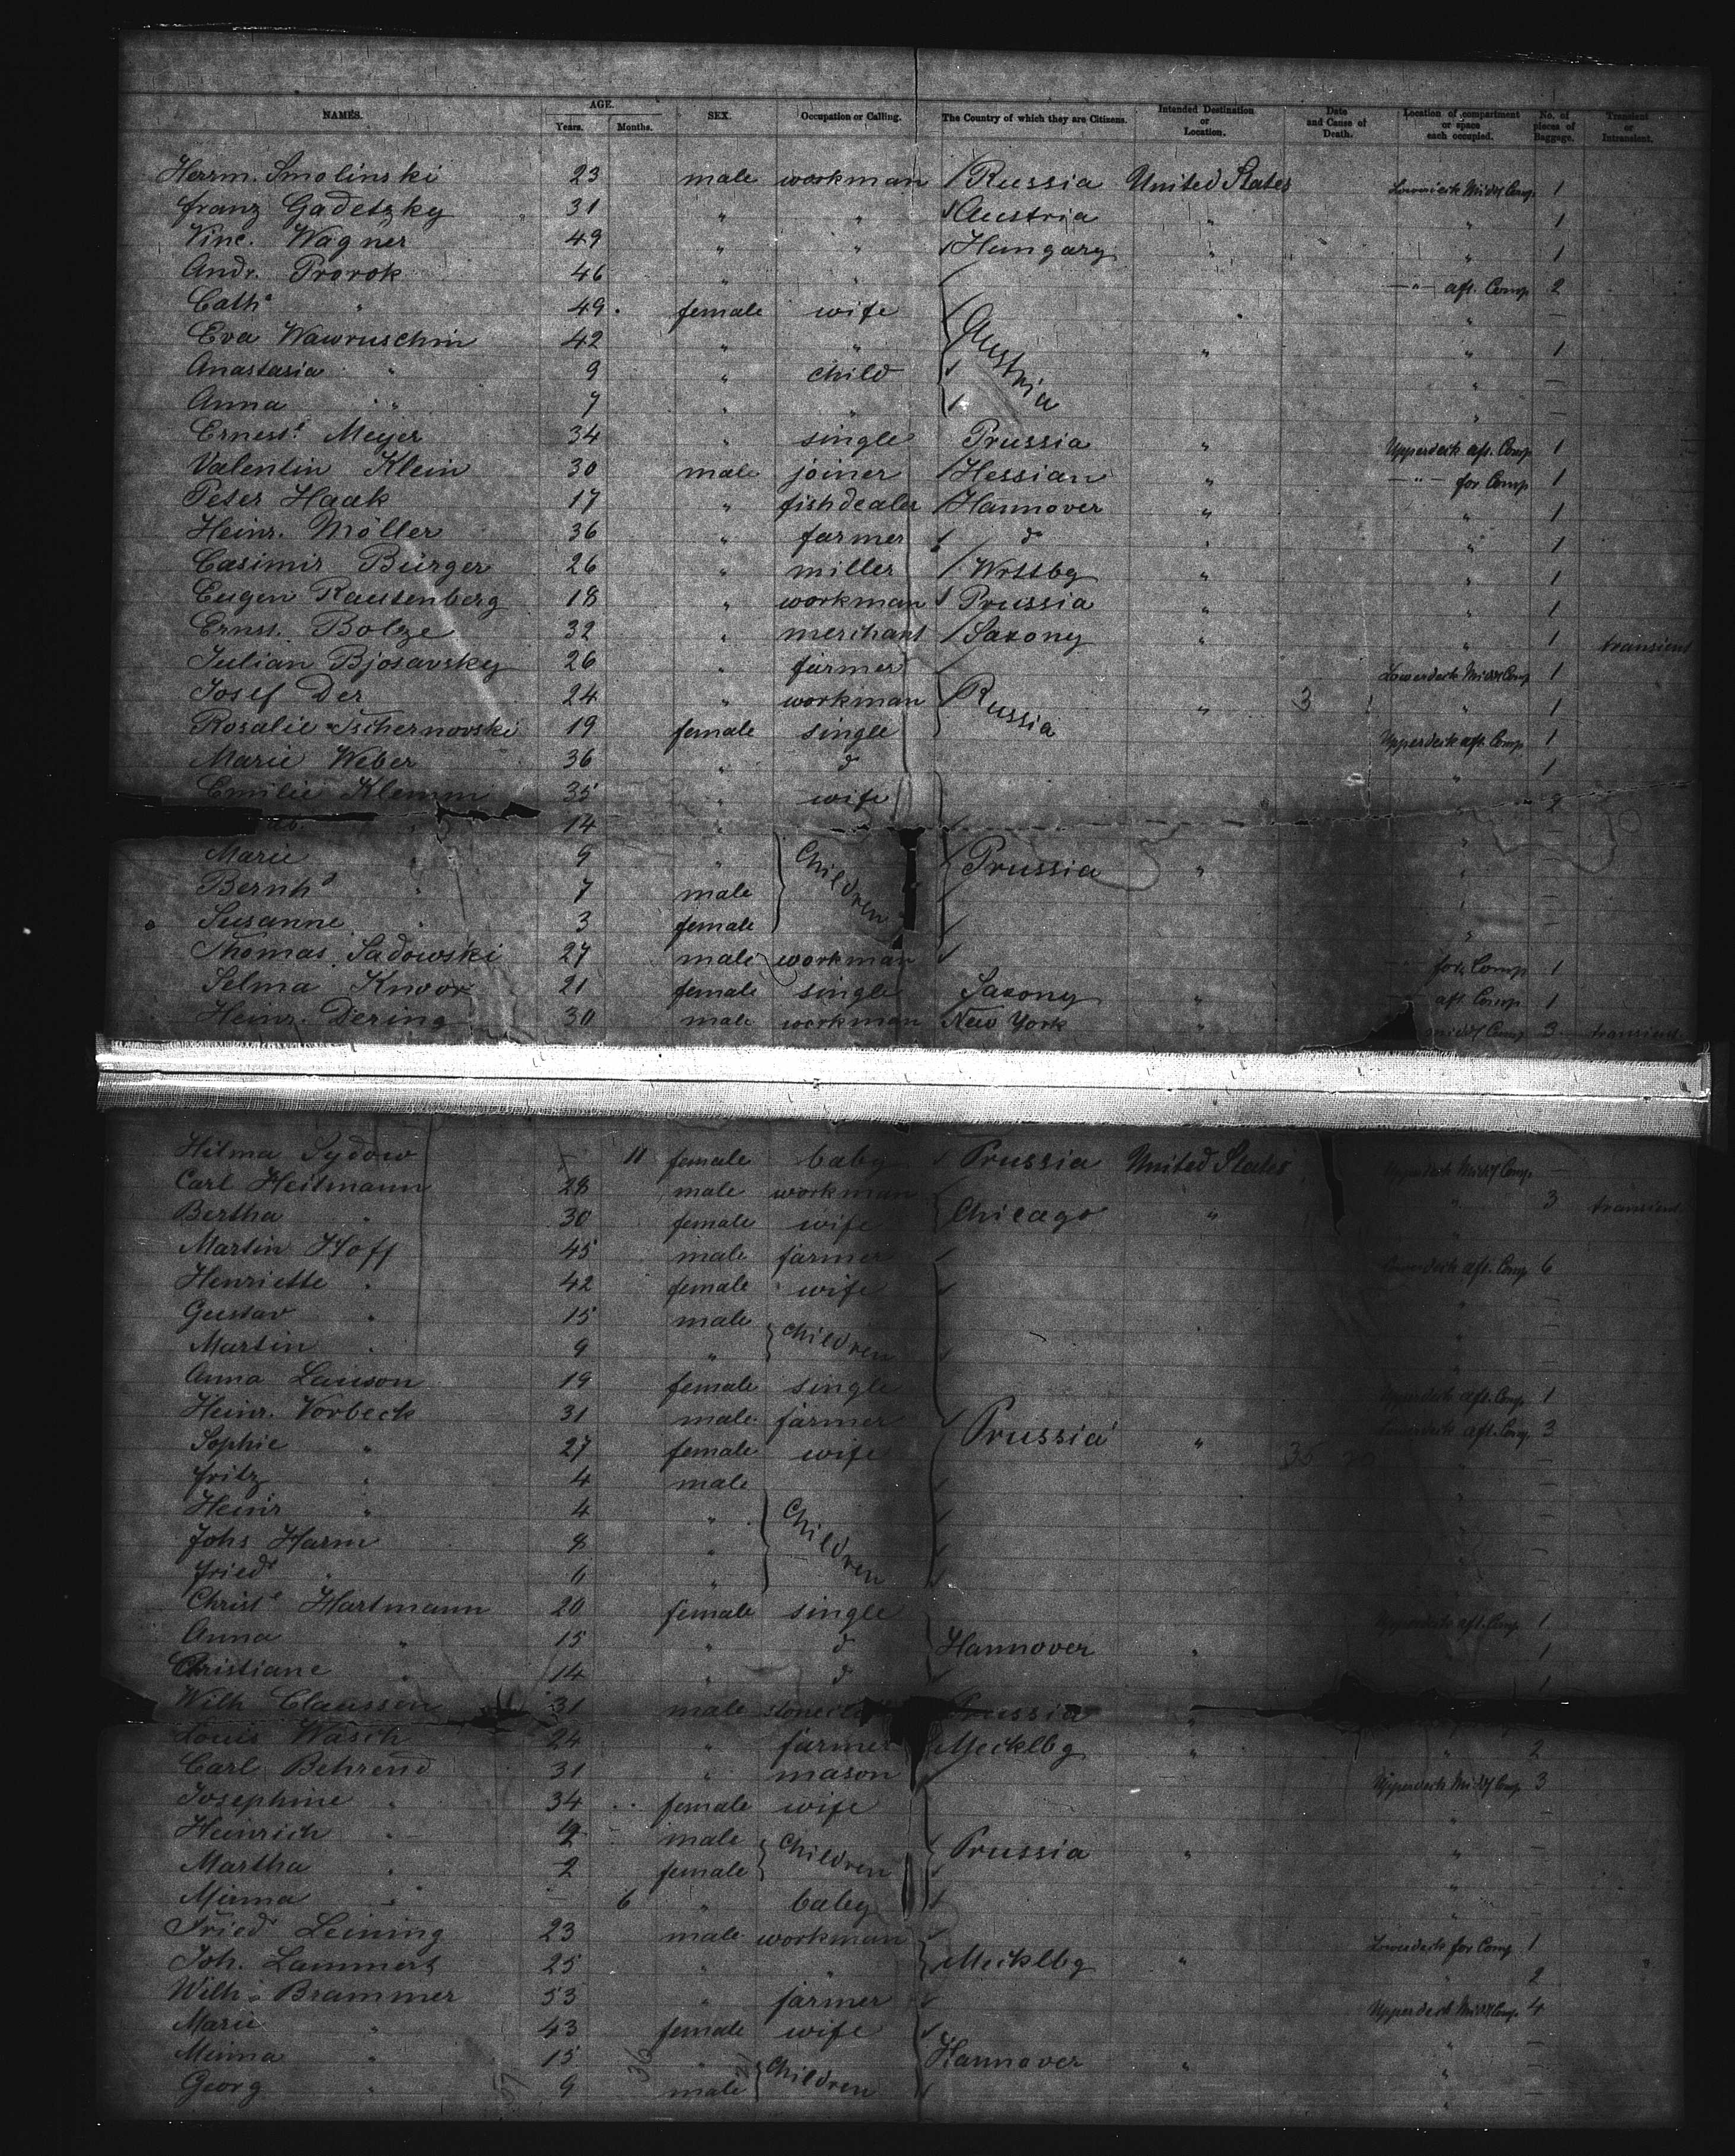 NAMES. AGE. Years. Months. SEX. Occupation or Calling. The Country of which they are Citizens. Intended Destination or Location. Date and Cause of Death. Location of compartment or space each occupied. No. of pieces of Baggage. Transient or Intransient.
Herrm. Smolinski 23 male workman Russia United States Lowerdeck Midd Comp. 1
Franz Gadetzky 31 " " Austria " " 1
Vinc. Wagner 49 " " Hungary " " 1
Andr. Prorok 46 " " —"— aft. Comp 2
Cathe " 49 female wife Austria " —
Eva Wawruschin 42 " " " " 1
Anastasia " 9 " child " —
Anna " 7 " " " —
Ernest. Meyer 34 " single Prussia " Upperdeck aft. Comp 1
Valentin Klein 30 male joiner Hessian " —"— for. Comp 1
Peter Haak 17 " fishdealer Hannover " " 1
Heinr. Möller 36 " farmer do " " 1
Casimir Bürger 26 " miller Wrttbg " " 1
Eugen Rautenberg 18 " workman Prussia " " 1
Ernst. Bolze 32 " merchant Saxony " " 1 transient
Julian Bjosavsky 26 " farmer Lowerdeck Midd Comp 1
Josef Der 24 " workman Russia " 3 " 1
Rosalie Tschernovski 19 female single Upperdeck aft. Comp 1
Marie Weber 36 " do " 1
Emilie Klemm 35 " wife " 2
14 " " —
Marie 9 " Children Prussia " " —
Bernhd " 7 male " —
Susanne " 3 female " —
Thomas Sadowski 27 male workman for. Comp 1
Selma Knoor 21 female single Saxony " aft. Comp 1
Heinr. Dering 30 male workman New York " midd Comp 3 transient
Hilma Sydow — 11 female baby Prussia United States Upperdeck Midd Comp. —
Carl Heitmann 28 male workman " 3 transient
Bertha " 30 female wife Chicago " "
Martin Hoff 45 male farmer Lowerdeck aft. Comp 6
Henriette " 42 female wife " —
Gustav " 15 male Children " —
Martin " 9 " " —
Anna Lauson 19 female single Upperdeck aft. Comp 1
Heinr. Vorbeck 31 male farmer Prussia Lowerdeck aft. Comp. 3
Sophie " 27 female wife " 35 —
Fritz " 4 male " —
Heinr " 4 " Children —
Johs Harm 8 " —
Friedr " 6 " —
Christe Hartmann 20 female single Upperdeck aft. Comp 1
Anna " 15 " do Hannover " 1
Christiane " 14 " do 1
Wilh Claussen 31 male Prussia "
Louis Wasch 24 " farmer Mecklbg " " 2
Carl Behrend 31 " mason Upperdeck Midd Comp 3
Josephine " 34 female wife " —
Heinrich " male Children Prussia " " —
Martha " 2 female " —
Minna " — 6 " baby " —
Friedr Leining 23 male workman Lowerdeck for Comp 1
Joh. Lammert 25 " " Mecklbg " " 2
Wilh. Brammer 53 " farmer Upperdeck Midd Comp. 4
Marie " 43 female wife " —
Minna " 15 " Children Hannover " " —
Georg " 9 male " —